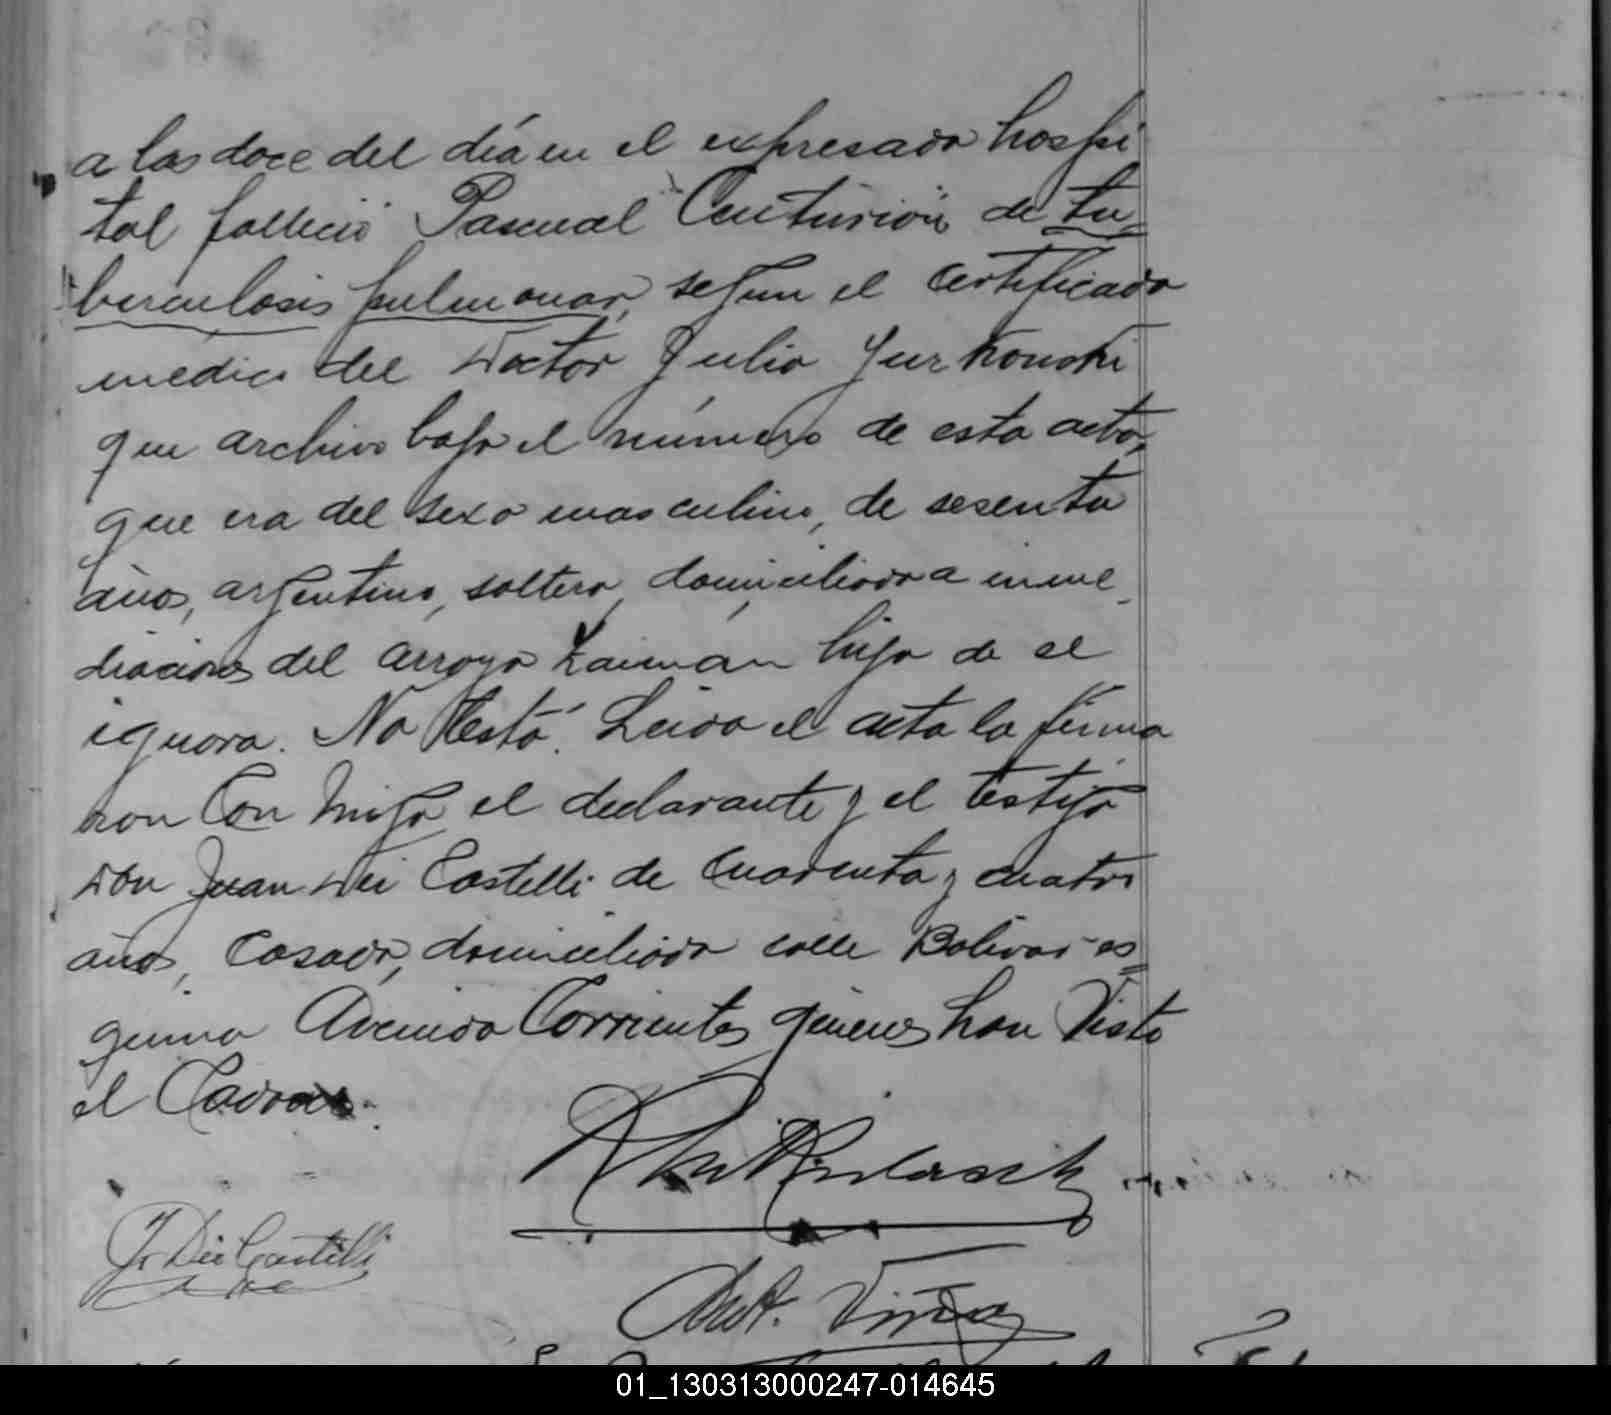 a las doce del día en el expresado hospi
tal falleció Pascual Centurión de tu=
berculosis pulmonar, segun el certificado
medico del Doctor Julio Jurkonski
que archivo bajo el número de esta acta,
que era del sexo masculino, de sesenta
años, argentino, soltero, domiciliado a inme_
diaciones del arroyo Zaimán hijo de se
ignora. No testó. Leida el acta la firma
ron Con migo el declarante y el testigo
Don Juan Dei Castelli de cuarenta y cuatro
años, Casado, domiciliado calle Bolivar es=
quina Avenida Corrientes quienes han visto
el Cadaver.
J. Dei Castelli
Ant. Viña
01_130313000247-014645